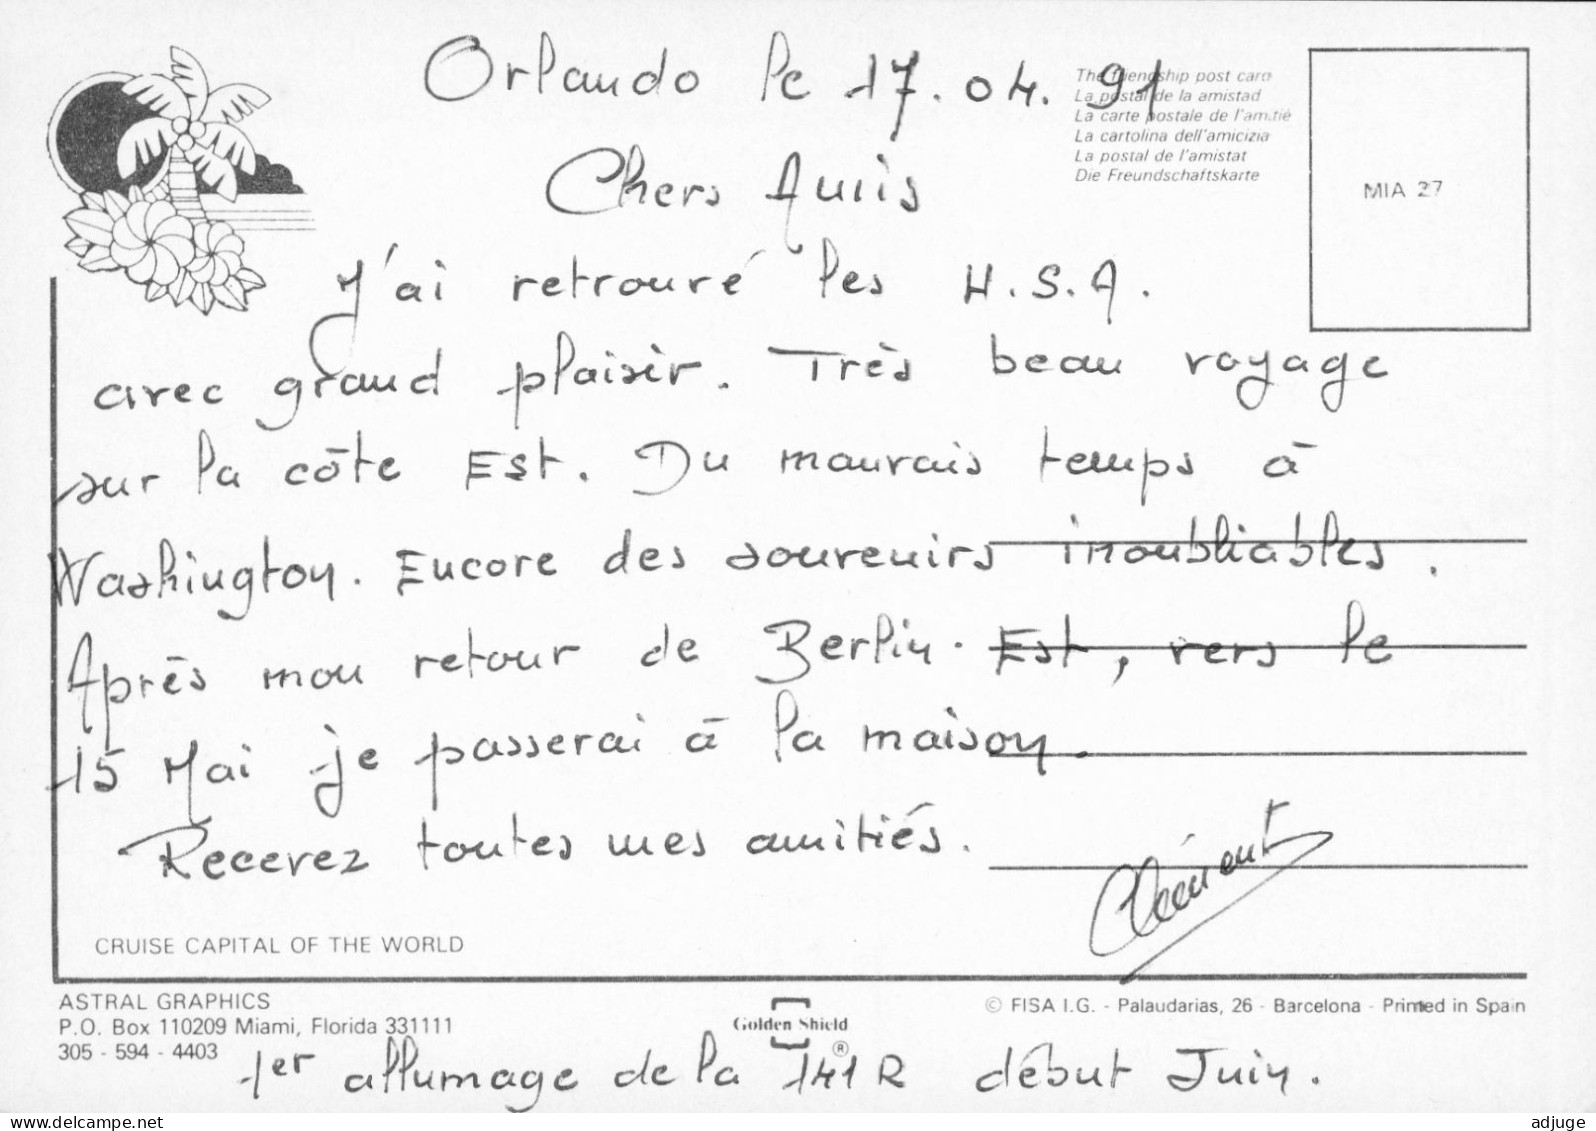 Orlando le 17.04.91
The friendship post card
La postal de la amistad
La carte postale de l'amitié
La cartolina dell'amicizia
La postal de l'amistat
Die Freundschaftskarte
MIA 27
Chers Amis
J'ai retrouvé les U.S.A.
avec grand plaisir. Très beau voyage
sur la côte Est. Du mauvais temps à
Washington. Encore des souvenirs inoubliables.
Après mon retour de Berlin-Est, vers le
15 Mai je passerai à la maison.
Recevez toutes mes amitiés.
Clément
CRUISE CAPITAL OF THE WORLD
ASTRAL GRAPHICS
P.O. Box 110209 Miami, Florida 331111
305 - 594 - 4403
Golden Shield
®
© FISA I.G. - Palaudarias, 26 - Barcelona - Printed in Spain
1er allumage de la 141R début Juin.
delcampe.net
adjuge